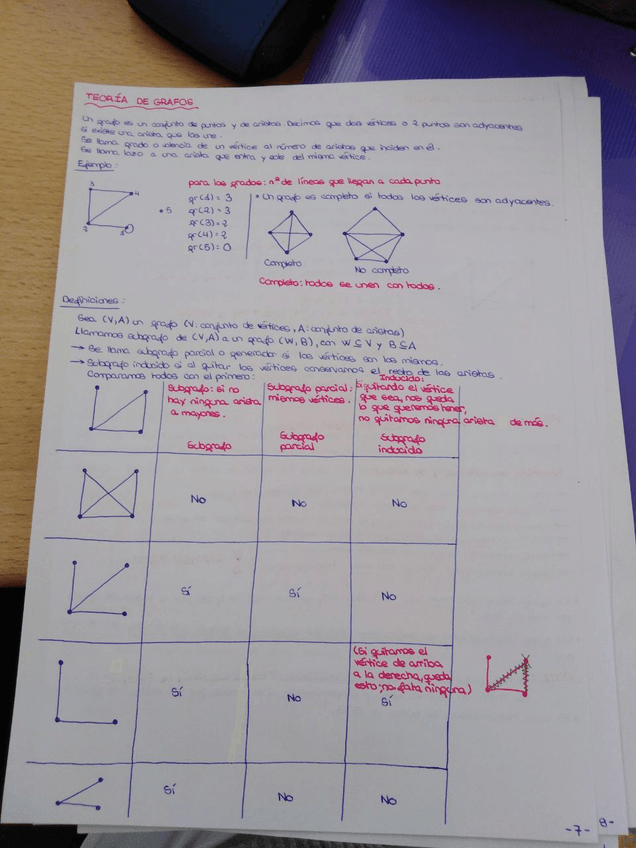 TEORÍA DE GRAFOS
Un grafo es un conjunto de puntos y de aristas. Decimos que dos vértices o 2 puntos son adyacentes
si existe una arista que los une.
Se llama grado o valencia de un vértice al número de aristas que inciden en él.
Se llama lazo a una arista que entra y sale del mismo vértice.
Ejemplo:
para los grados: nº de líneas que llegan a cada punto
3
4
2
1
• 5
gr(1) = 3
gr(2) = 3
gr(3) = 2
gr(4) = 2
gr(5) = 0
* Un grafo es completo si todos los vértices son adyacentes.
Completo
No completo
Completo: todos se unen con todos.
Definiciones:
Sea (V,A) un grafo (V: conjunto de vértices, A: conjunto de aristas)
Llamamos subgrafo de (V,A) a un grafo (W,B), con W ⊆ V y B ⊆ A
→ Se llama subgrafo parcial o generador si los vértices son los mismos.
→ Subgrafo inducido si al quitar los vértices conservamos el resto de las aristas.
Comparamos todos con el primero:
Subgrafo: si no
hay ninguna arista
a mayores.
Subgrafo
Subgrafo parcial:
mismos vértices.
Subgrafo
parcial
Inducido:
quitando el vértice
que sea, nos queda
lo que queremos tener,
no quitamos ninguna arista de más.
Subgrafo
inducido
No
No
No
Sí
Sí
No
Sí
No
(Si quitamos el
vértice de arriba
a la derecha, queda
esto; no falta ninguna)
Sí
Sí
No
No
-7-
8-